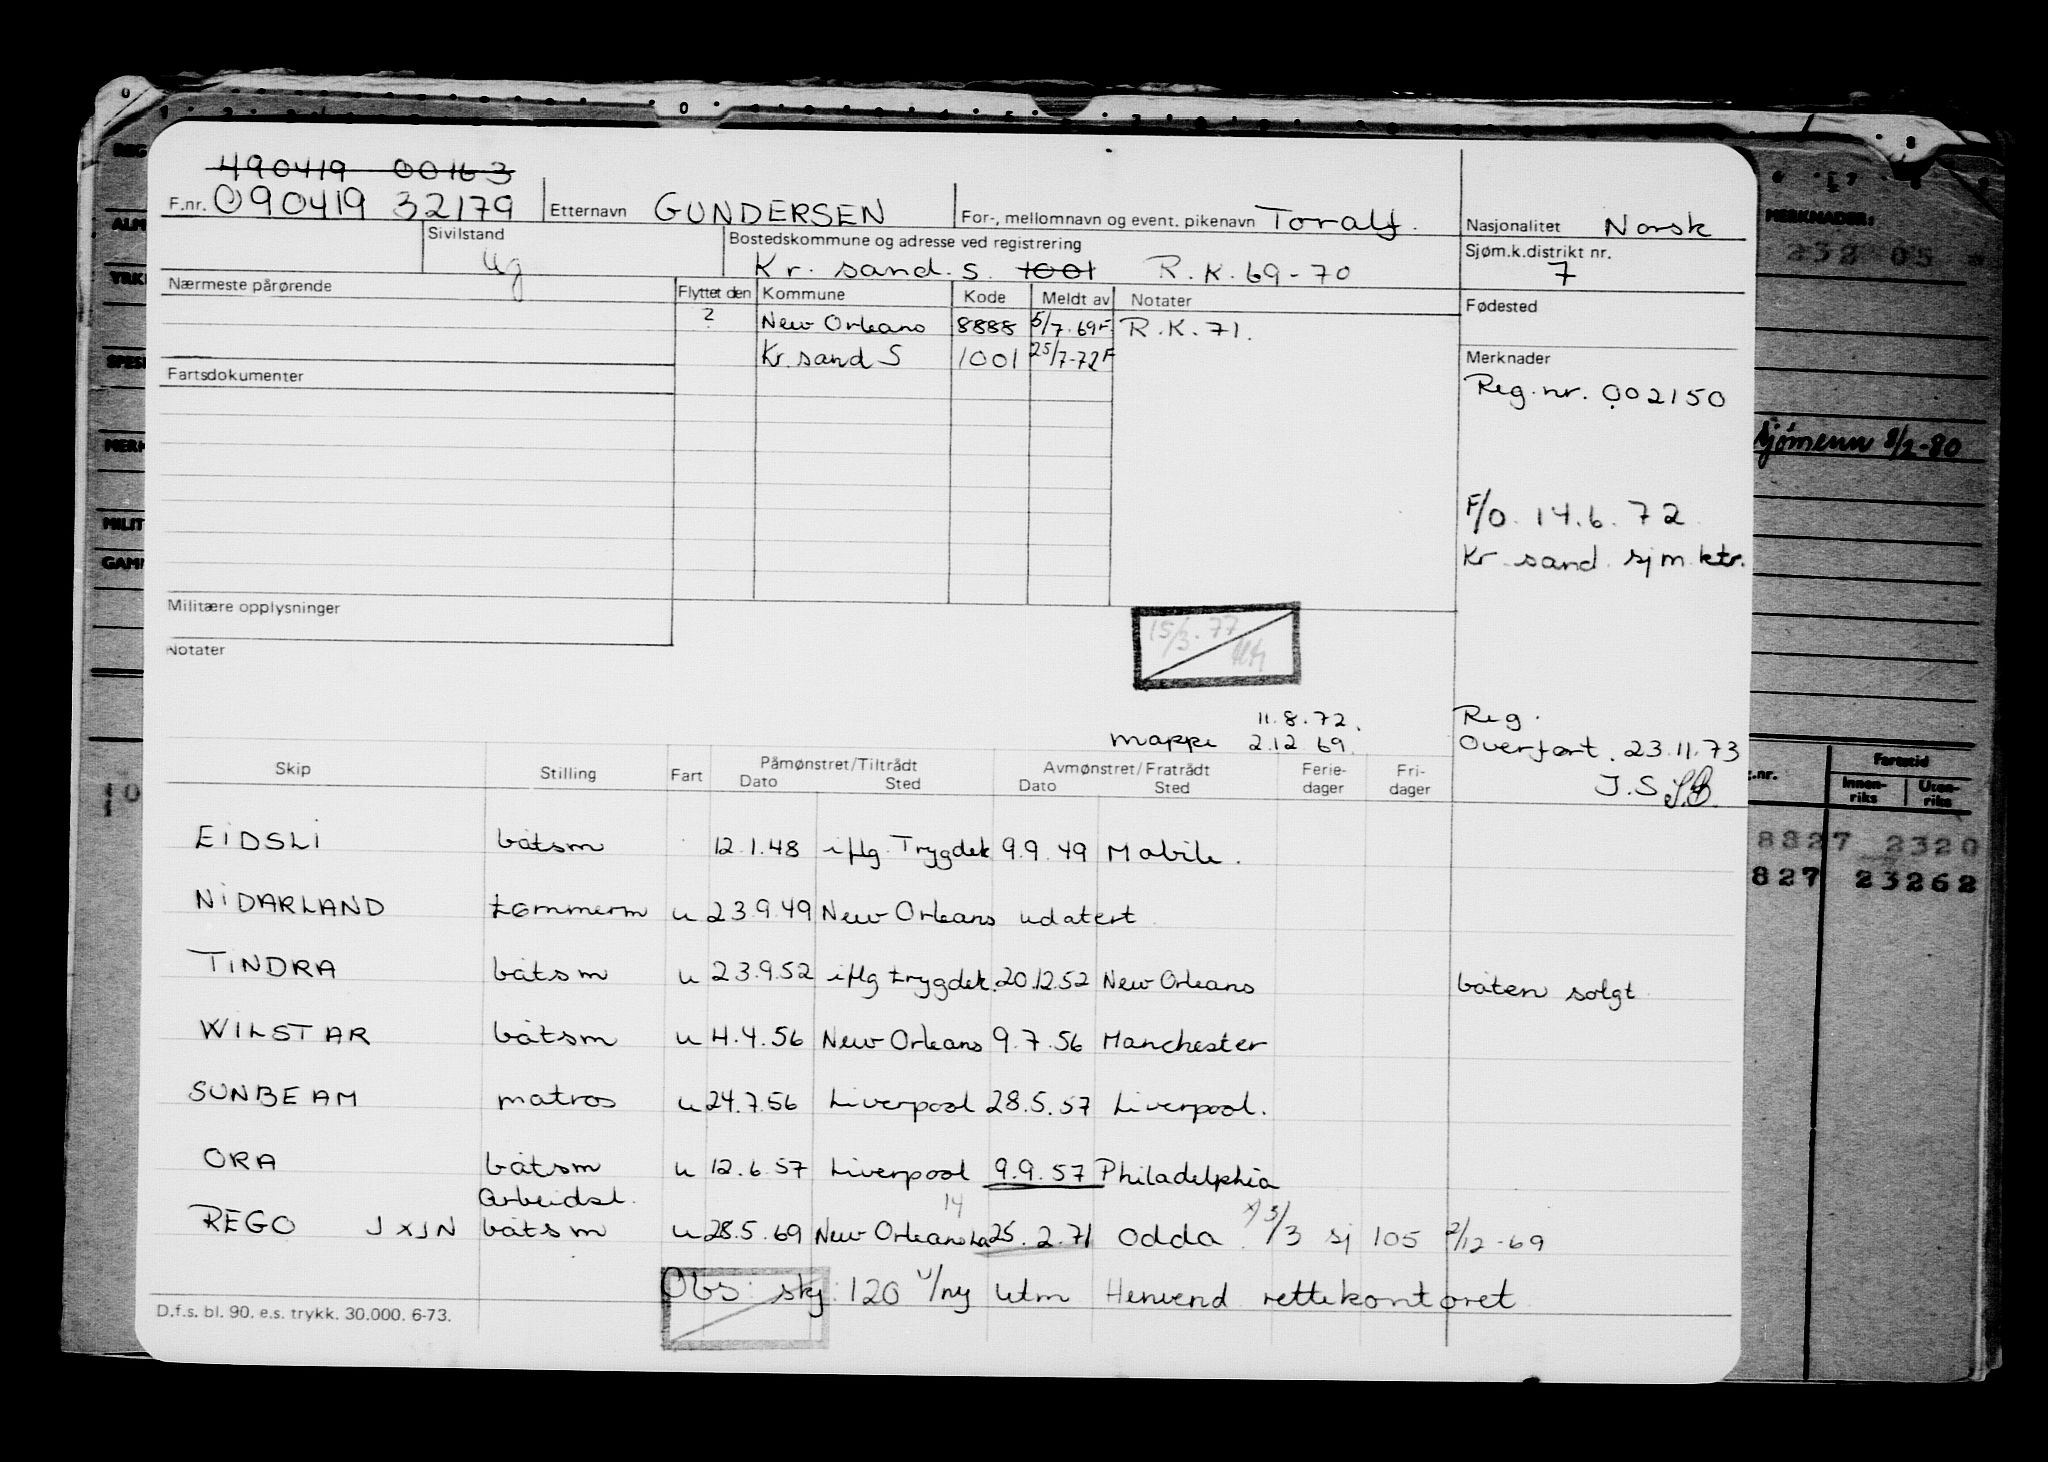 490419 00163
F.nr. 090419 32179 Etternavn GUNDERSEN For-, mellomnavn og event. pikenavn Toralf. Nasjonalitet Norsk
Sivilstand ug Bostedskommune og adresse ved registrering Kr. sand. S. 1001 R.K. 69-70 Sjøm.k.distrikt nr. 7
Nærmeste pårørende Flyttet den Kommune Kode Meldt av Notater Fødested
? New Orleans 8888 5/7.69F. R.K.71.
Kr. sand S 1001 25/7-72F Merknader
Fartsdokumenter Reg.nr. 002150
sjømenn 8/2-80
F/O. 14.6.72
Kr. sand. sjm.ktr.
Militære opplysninger
Notater
15/3.77
11.8.72. Reg.
mappe 2.12 69. Overført. 23.11.73
J.S
Skip Stilling Fart Påmønstret/Tiltrådt Dato Sted Avmønstret/Fratrådt Dato Sted Ferie-dager Fri-dager
EIDSLI båtsm 12.1.48 iflg. Trygdek 9.9.49 Mobile.
NIDARLAND tømmerm u 23.9.49 New Orleans udatert
TINDRA båtsm u 23.9.52 iflg trygdek. 20.12.52 New Orleans båten solgt
WILSTAR båtsm u 4.4.56 New Orleans 9.7.56 Manchester
SUNBEAM matros u 24.7.56 Liverpool 28.5.57 Liverpool.
ORA båtsm u 12.6.57 Liverpool 9.9.57 Philadelphia
arbeidsl. 14
REGO JXJN båtsm u 28.5.69 New Orleans La 25.2.71 Odda. x) 5/3 sj 105 2/12-69
Obs: skj: 120 u/ny utm Henvend rettekontoret
D.f.s. bl. 90. e.s. trykk. 30.000. 6-73.
MERKNADER:
232 05
Fartstid
Innen-riks Uten-riks
8827 2320
827 23262